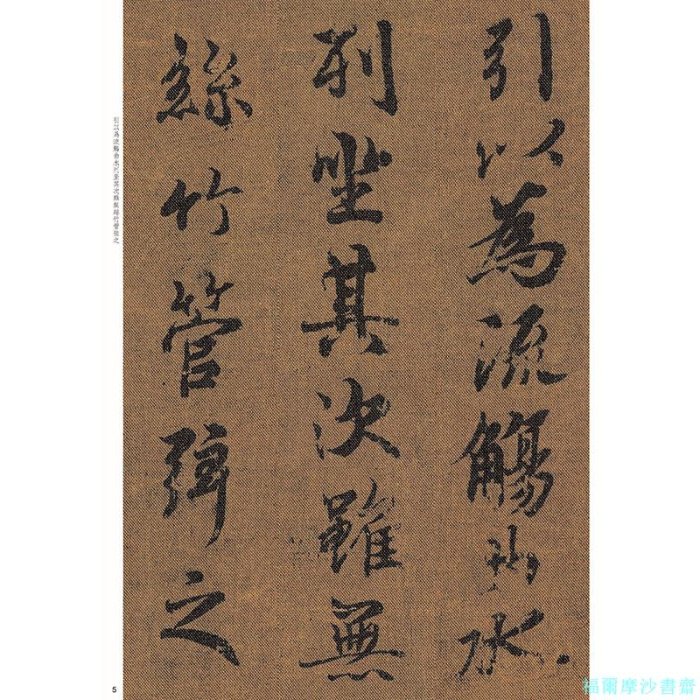 引以為流觴曲水
列坐其次雖無
絲竹管弦之
引以為流觴曲水列坐其次雖無絲竹管弦之
5
福爾摩沙書齋